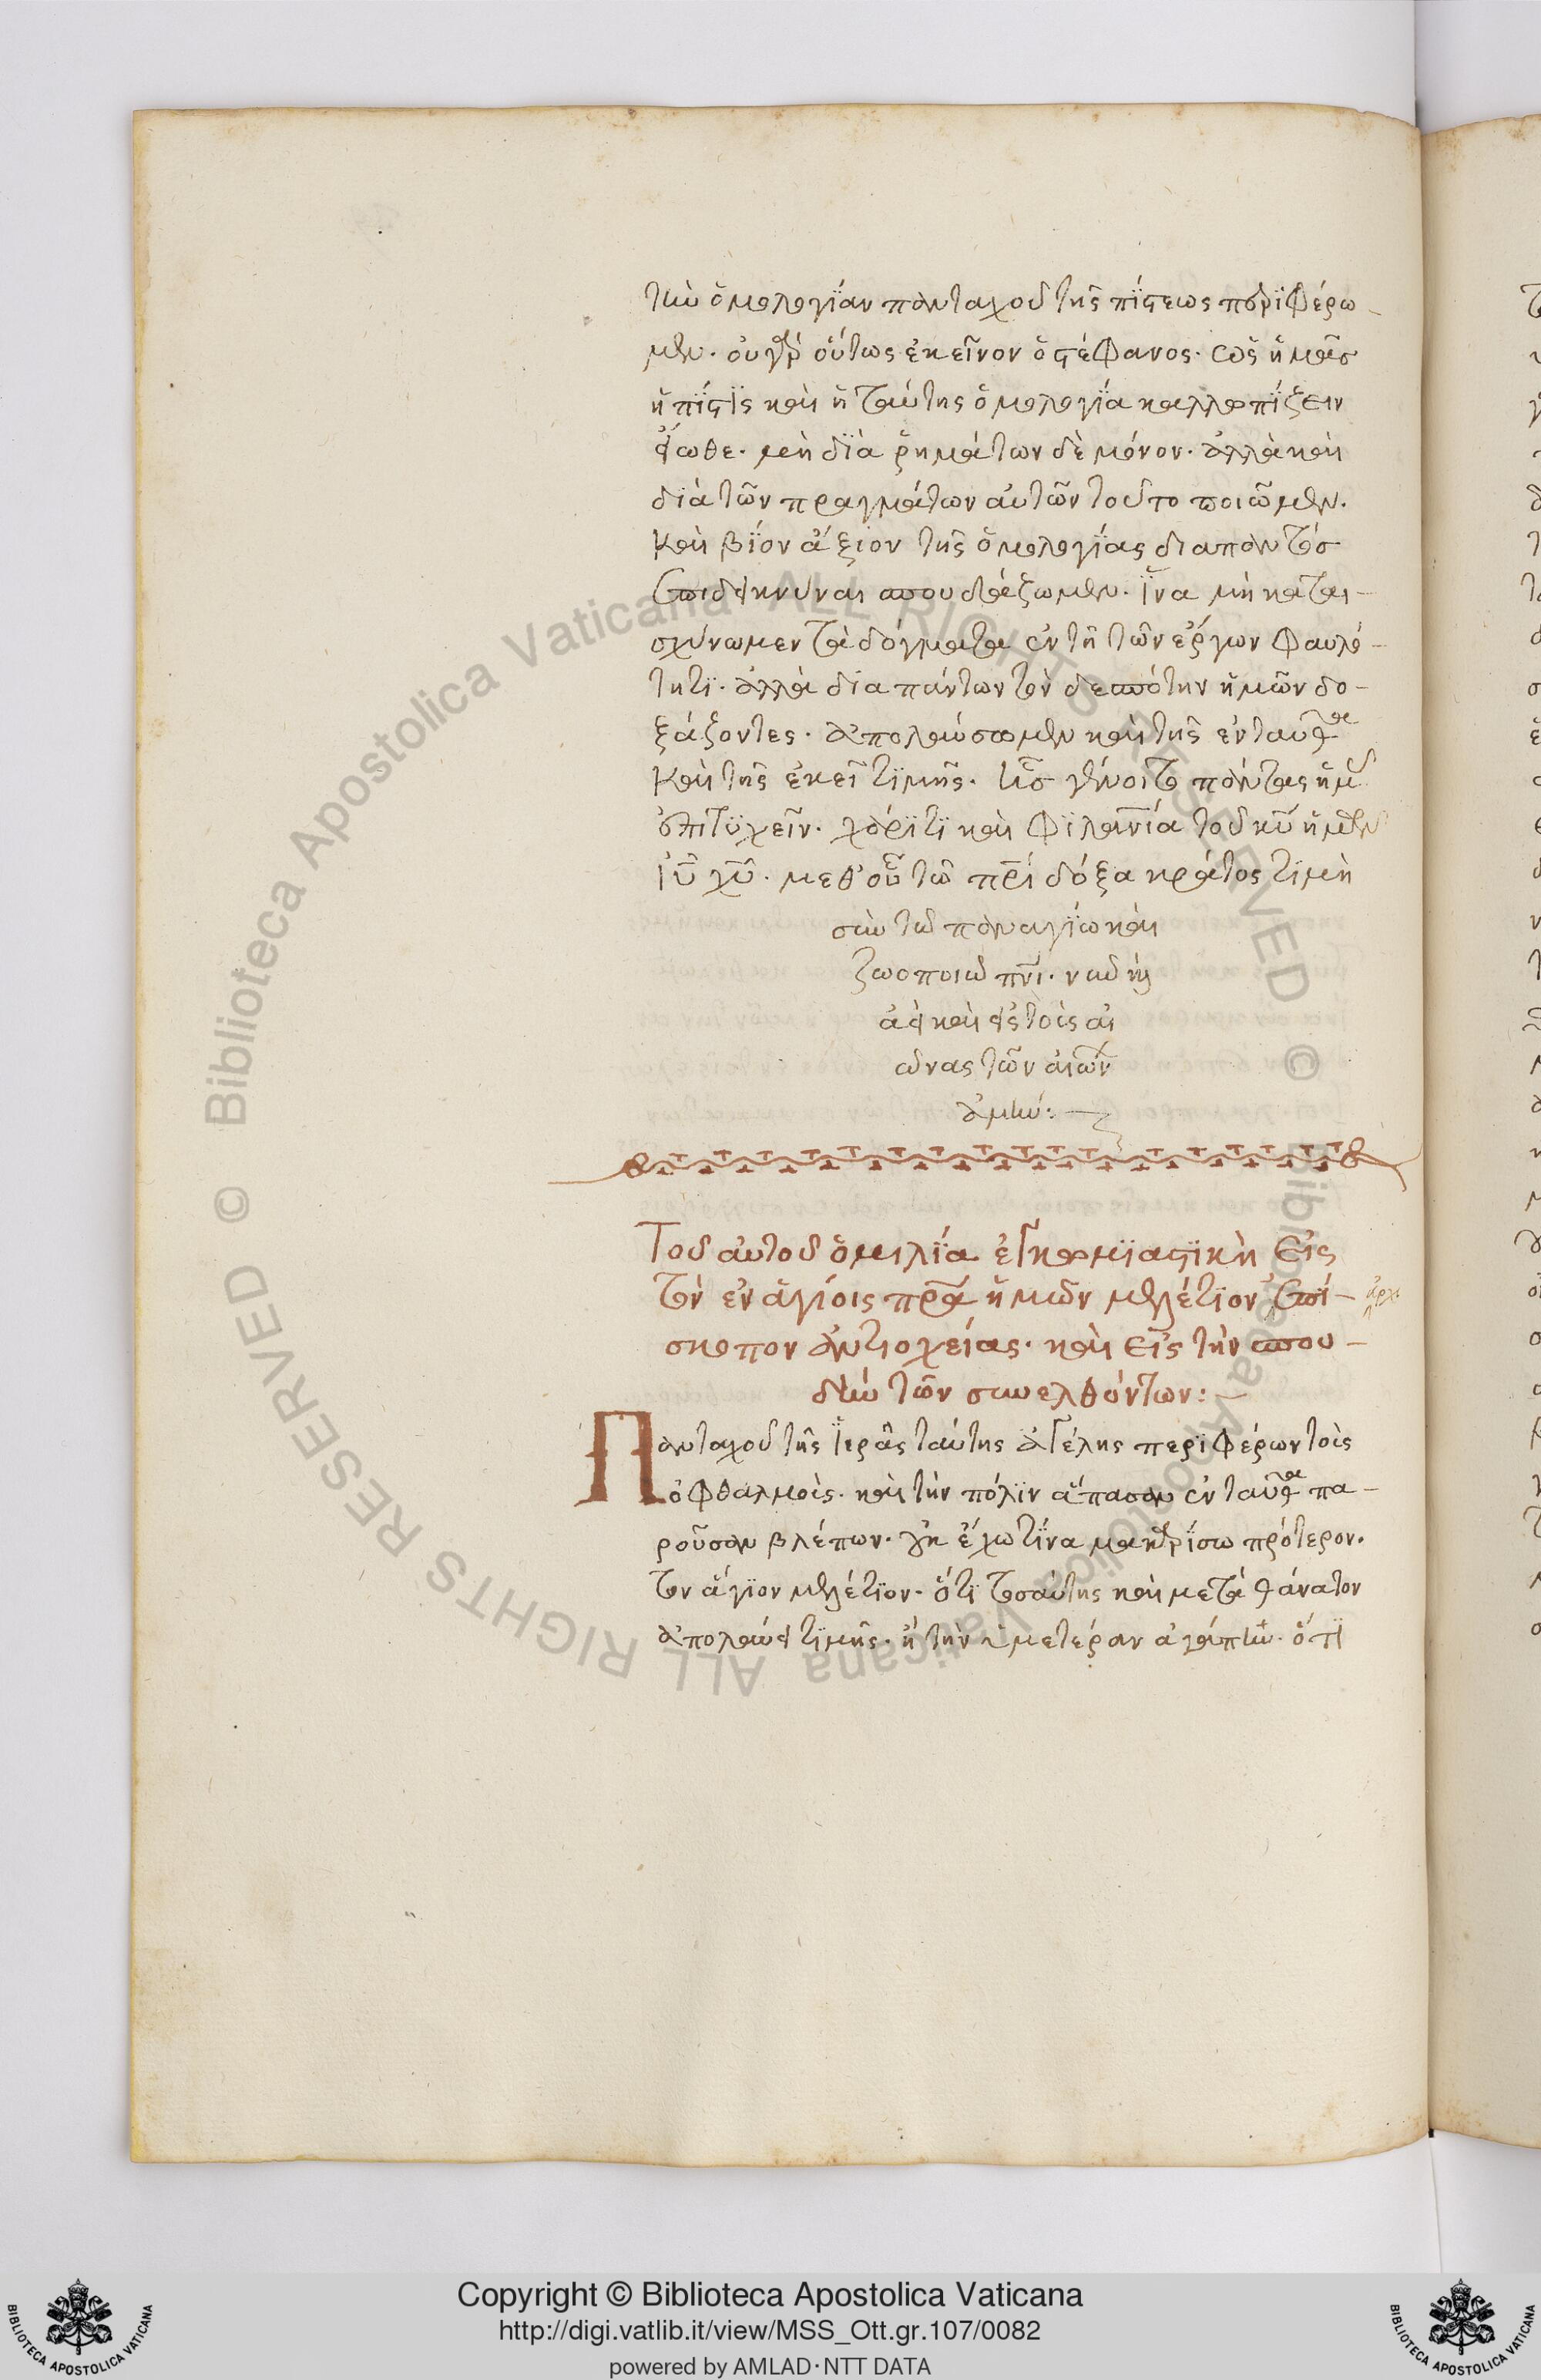 τὴν ὁμολογίαν πανταχοῦ τῆς πίστεως περιφέρω-
μεν. οὐ γὰρ οὕτως ἐκεῖνον ὁ στέφανος. ὡς ἡμᾶς
ἡ πίστις καὶ ἡ ταύτης ὁμολογία καλλωπίζειν
εἴωθε. μὴ διὰ ῥημάτων δὲ μόνον. ἀλλὰ καὶ
διὰ τῶν πραγμάτων αὐτῶν τοῦτο ποιῶμεν.
καὶ βίον ἄξιον τῆς ὁμολογίας διαπαντὸς
ἐπιδείκνυναι σπουδάζωμεν. ἵνα μὴ καται-
σχύνωμεν τὰ δόγματα ἐν τῇ τῶν ἔργων φαυλό-
τητι. ἀλλὰ διὰ πάντων τὸν δεσπότην ἡμῶν δο-
ξάζοντες. ἀπολαύσωμεν καὶ τῆς ἐνταῦθα
καὶ τῆς ἐκεῖ τιμῆς. ἧς γένοιτο πάντας ἡμᾶς
ἐπιτυχεῖν. χάριτι καὶ φιλανίᾳ τοῦ κυ ἡμῶν
ιυ χυ. μεθ' οὗ τῷ πρι δόξα κράτος τιμὴ
σὺν τῷ παναγίῳ καὶ
ζωοποιῷ πνι. νῦν καὶ
ἀεὶ καὶ εἰς τοὺς αἰ
ῶνας τῶν αἰώνων
ἀμήν:
Τοῦ αὐτοῦ ὁμιλία ἐγκωμιαστικὴ εἰς
τὸν ἐν ἁγίοις πρα ἡμῶν μελέτιον ἐπί- ἀρχι
σκοπον ἀντιοχείας. καὶ εἰς τὴν σπου-
δὴν τῶν συνελθόντων:
Πανταχοῦ τῆς ἱερᾶς ταύτης ἀγέλης περιφέρων τοὺς
ὀφθαλμούς. καὶ τὴν πόλιν ἅπασαν ἐνταῦθα πα-
ροῦσαν βλέπων. οὐκ ἔχω τίνα μακαρίσω πρότερον.
τὸν ἅγιον μελέτιον. ὅτι τοσαύτης καὶ μετὰ θάνατον
ἀπολαύει τιμῆς. ἢ τὴν ὑμετέραν ἀγάπην. ὅτι
Copyright © Biblioteca Apostolica Vaticana
http://digi.vatlib.it/view/MSS_Ott.gr.107/0082
powered by AMLAD·NTT DATA
BIBLIOTECA APOSTOLICA VATICANA
BIBLIOTECA APOSTOLICA VATICANA
© Biblioteca Apostolica Vaticana ALL RIGHTS RESERVED
© Biblioteca Apostolica Vaticana ALL RIGHTS RESERVED